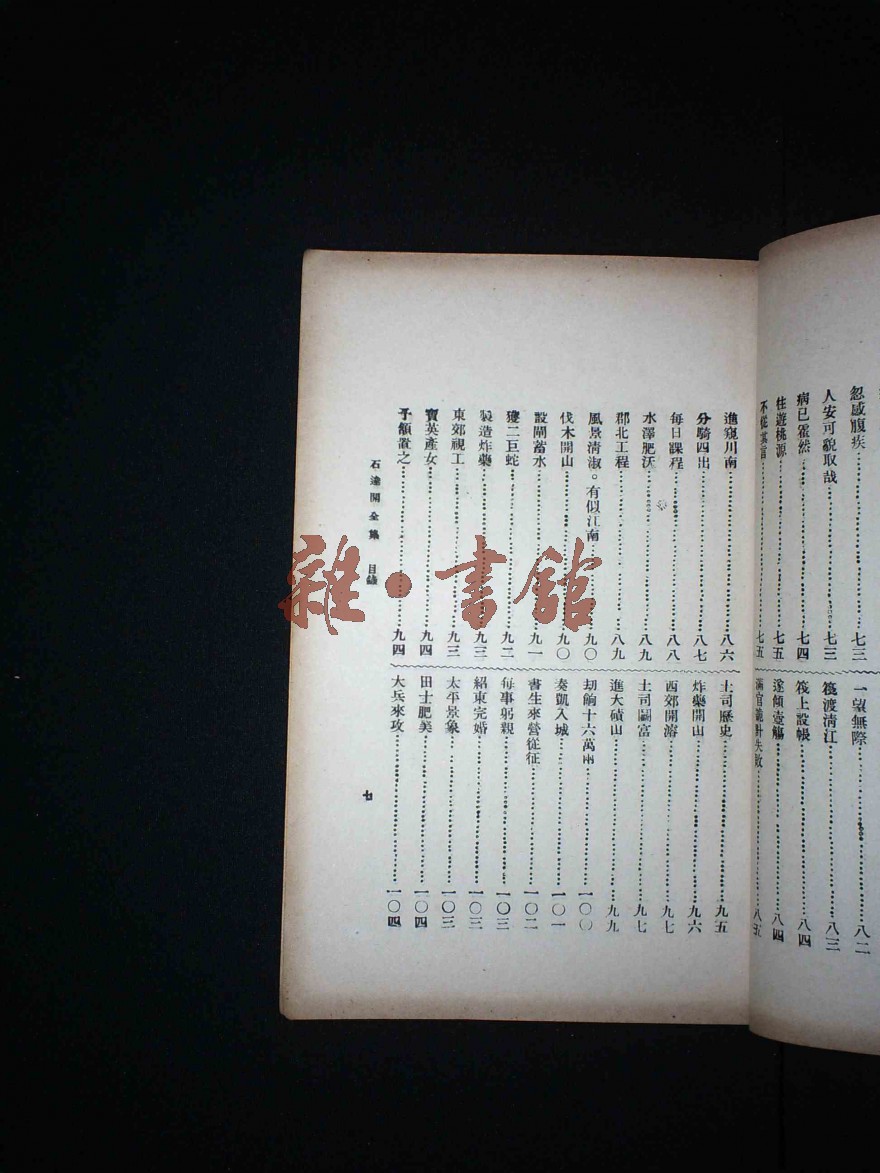 忽感腹疾 七三
人安可貌取哉 七三
病已霍然 七四
往遊桃源 七五
不從寡言 七五
一望無際 八二
筏渡清江 八三
筏上設帳 八四
遂傾壺觴 八四
滿官詭計失敗 八五
進窺川南 八六
分騎四出 八七
每日課程 八八
水澤肥沃 八九
郡北工程 八九
風景清淑。有似江南 九〇
伐木開山 九〇
設閘蓄水 九一
獲二巨蛇 九二
製造炸藥 九三
東郊視工 九三
寶英產女 九四
予額置之 九四
土司歷史 九五
炸藥開山 九六
西郊開游 九七
土司鬪富 九七
進大磧山 九九
劫餉十六萬兩 一〇〇
奏凱入城 一〇一
書生來營從征 一〇二
每事躬親 一〇三
紹東完婚 一〇三
太平景象 一〇三
田土肥美 一〇四
大兵來攻 一〇四
石達開全集 目錄
七
雜·書館